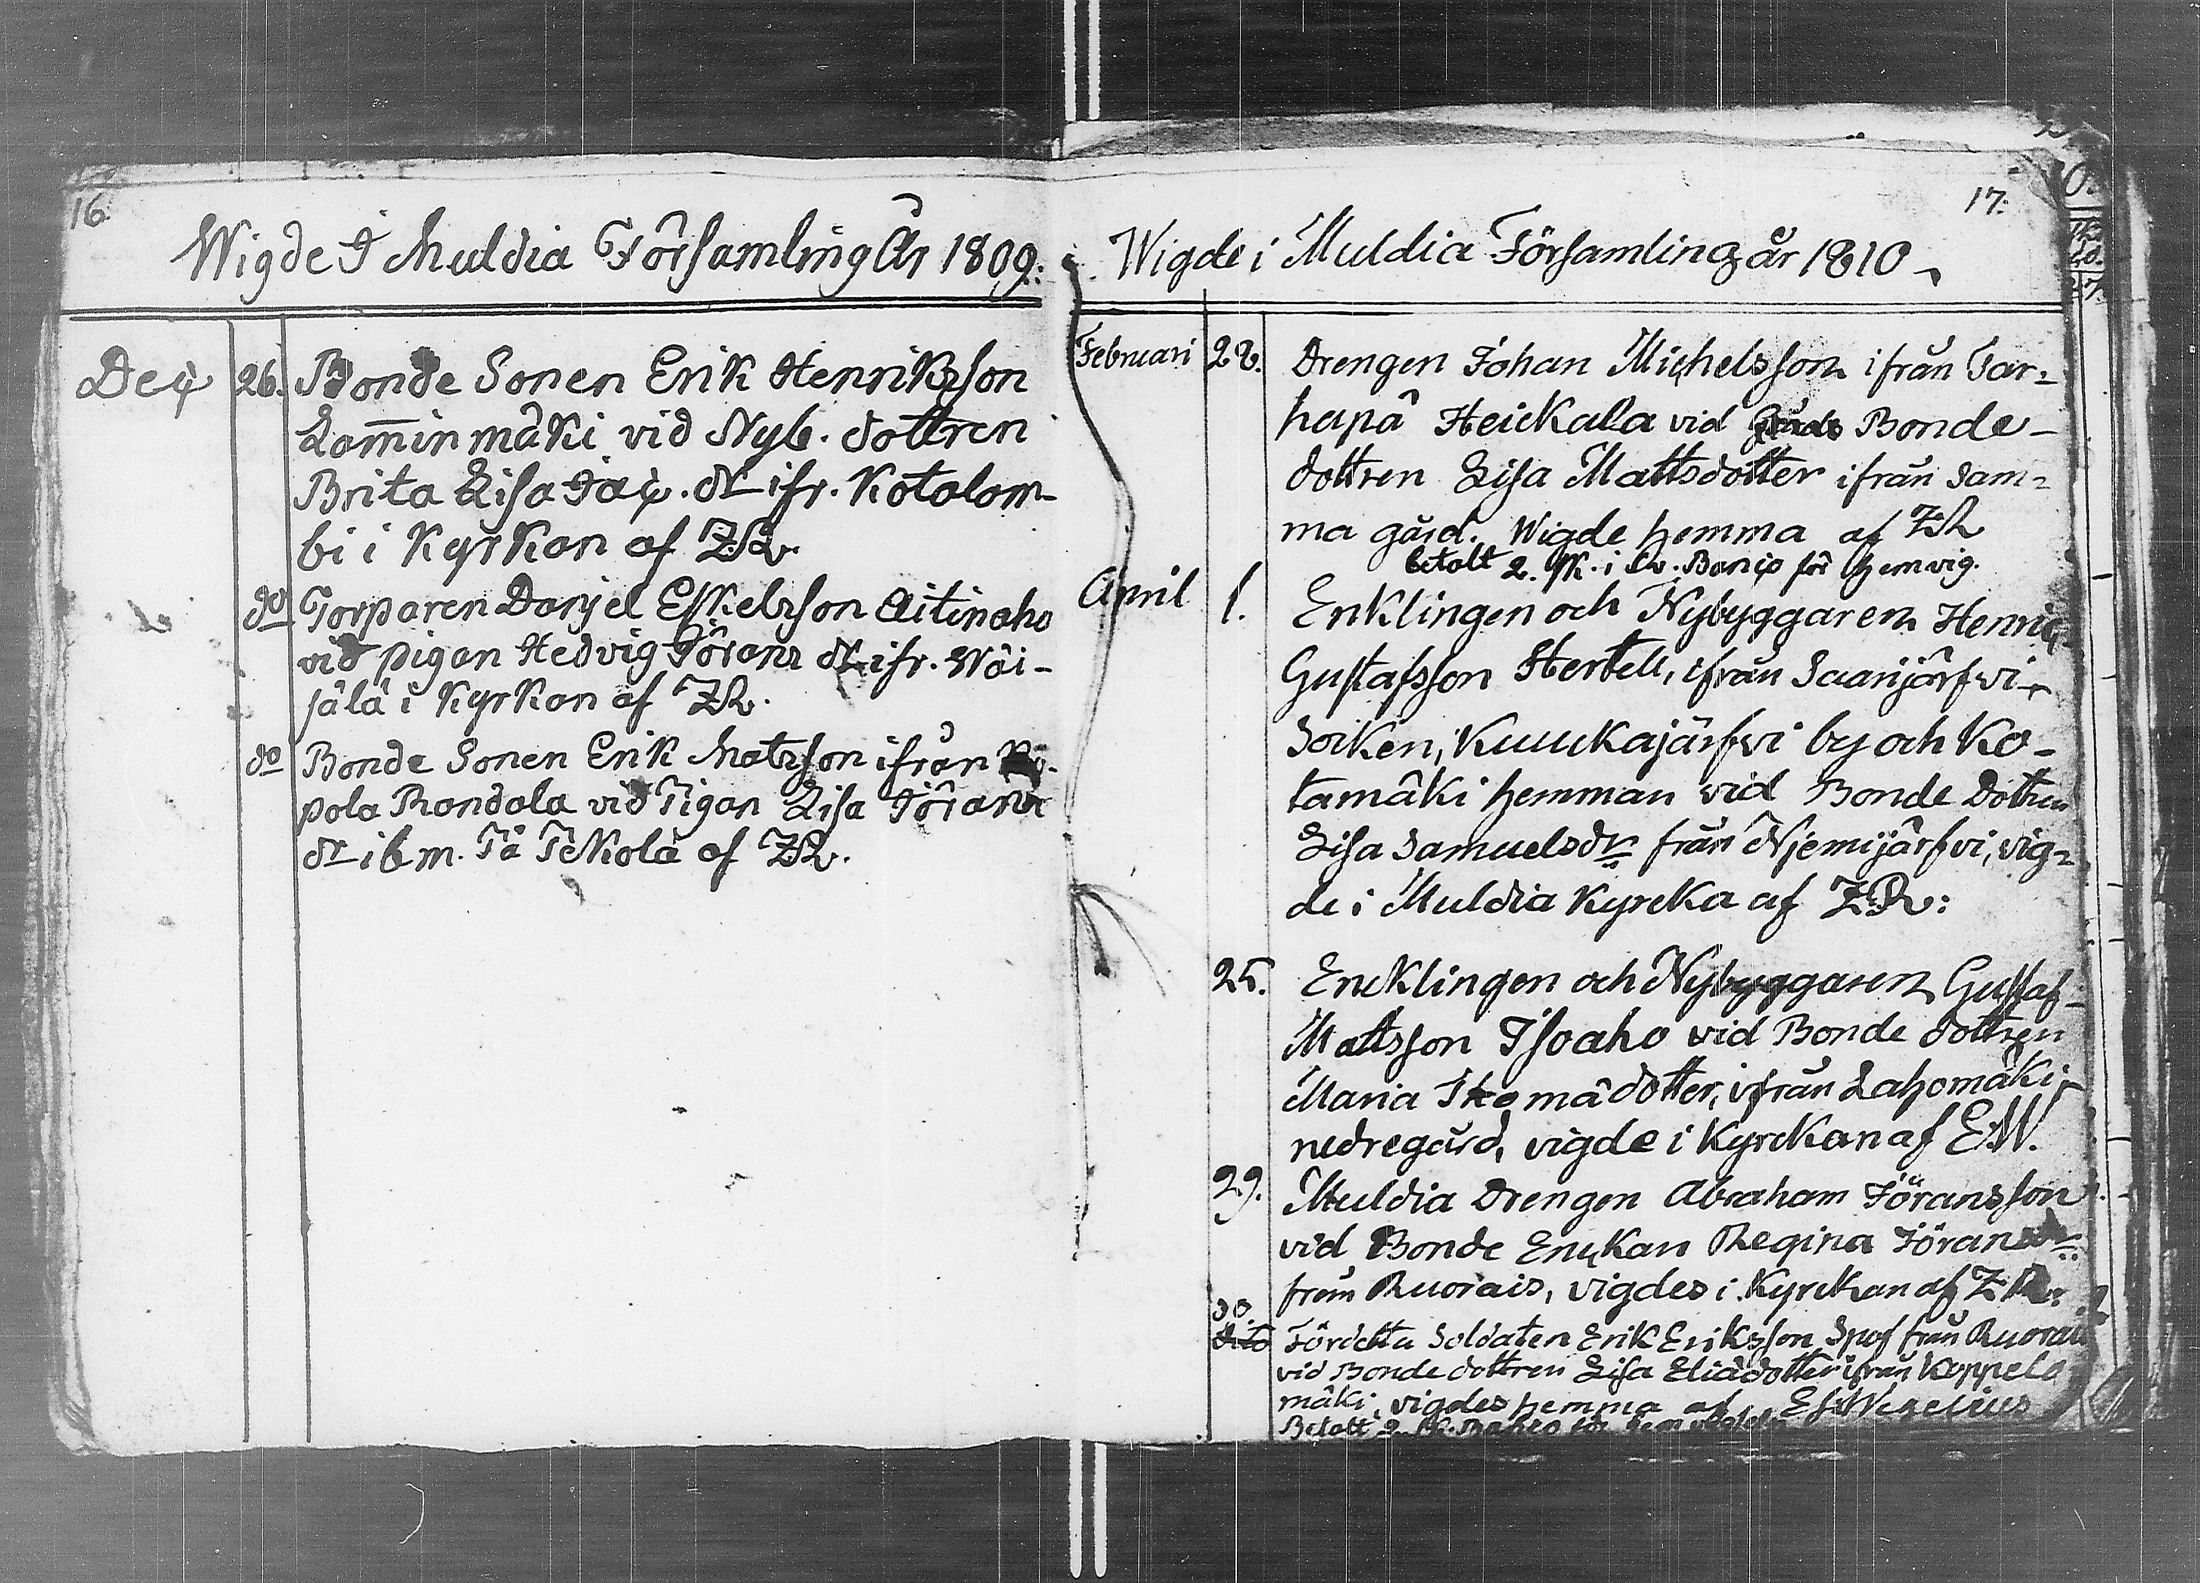 16.
Wigde I Muldia Församling År 1809.
Dec 26. Bonde Sonen Erik Henriksson
Lam̄inmäki vid Nyb. dottren
Brita Lisa Jac. dr ifr. Kotalam-
bi i Kyrkan af ZR.
do Torparen Danjel Eskelsson Aitinaho
vid pigan Hedvig Görans dr ifr. Wäi-
jälä i Kyrkan af ZR.
do Bonde Sonen Erik Matsson ifrån
pola Randala vid Pigan Lisa Görans
dr ibm. Pä Pekola af ZR.
17.
Wigde i Muldia Församling år 1810
Februari 28. Drengen Johan Michelsson ifrån Tar-
hapä Heickala vid Bonde-
dottren Lisa Mattsdotter ifrån sam-
ma gård. Wigde hemma af ZR
betalt 2. sk. i Sv. Banco för hemvig.
April 1. Enklingen och Nybyggaren Henric
Gustafsson Hertell, ifrån Saarijärfvi
Soken, Kuukajärfvi by och Ko-
tamäki hemman vid Bonde Dottren
Lisa Samuelsdr från Njemijärfvi, vig-
de i Muldia Kyrcka af ZR:
25. Encklingen och Nybyggaren Gustaf
Mattsson Isoaho vid Bonde dottren
Maria Thomädotter, ifrån Lahomäki
nedregård, vigde i Kyrckan af E.W.
29. Muldia Drengen Abraham Jöransson
vid Bonde Enckan Regina Jöransdr
från Ruorais, vigdes i Kyrckan af ZR.
30.
dito Fördetta Soldaten Erik Eriksson Spof från Ruorais
vid Bonde dottren Lisa Eliädotter ifrån Koppelo
mäki, vigdes hemma af Es: Wegelius
Betalt 2. sk. Banco för hem